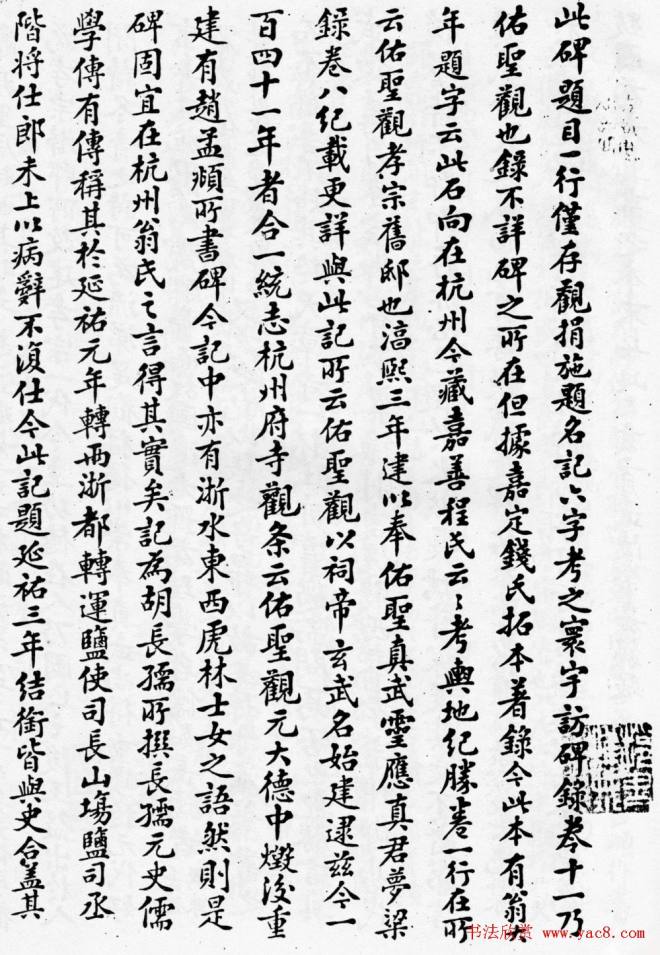 此碑題目一行僅存觀捐施題名記六字考之寰宇訪碑錄卷十一乃
佑聖觀也錄不詳碑之所在但據嘉定錢氏拓本著錄今此本有翁大
年題字云此石向在杭州今藏嘉善程氏云〻考輿地紀勝卷一行在所
云佑聖觀孝宗舊邸也淳熙三年建以奉佑聖真武靈應真君夢梁
錄卷八紀載更詳與此記所云佑聖觀以祠帝玄武名始建逮茲今一
百四十一年者合一統志杭州府寺觀条云佑聖觀元大德中燬後重
建有趙孟頫所書碑今記中亦有浙水東西虎林士女之語然則是
碑固宜在杭州翁氏之言得其實矣記為胡長孺所撰長孺元史儒
學傳有傳稱其於延祐元年轉两浙都轉運鹽使司長山場鹽司丞
階將仕郎未上以病辭不復仕今此記題延祐三年結銜皆與史合盖其
书法欣赏 www.yac8.com